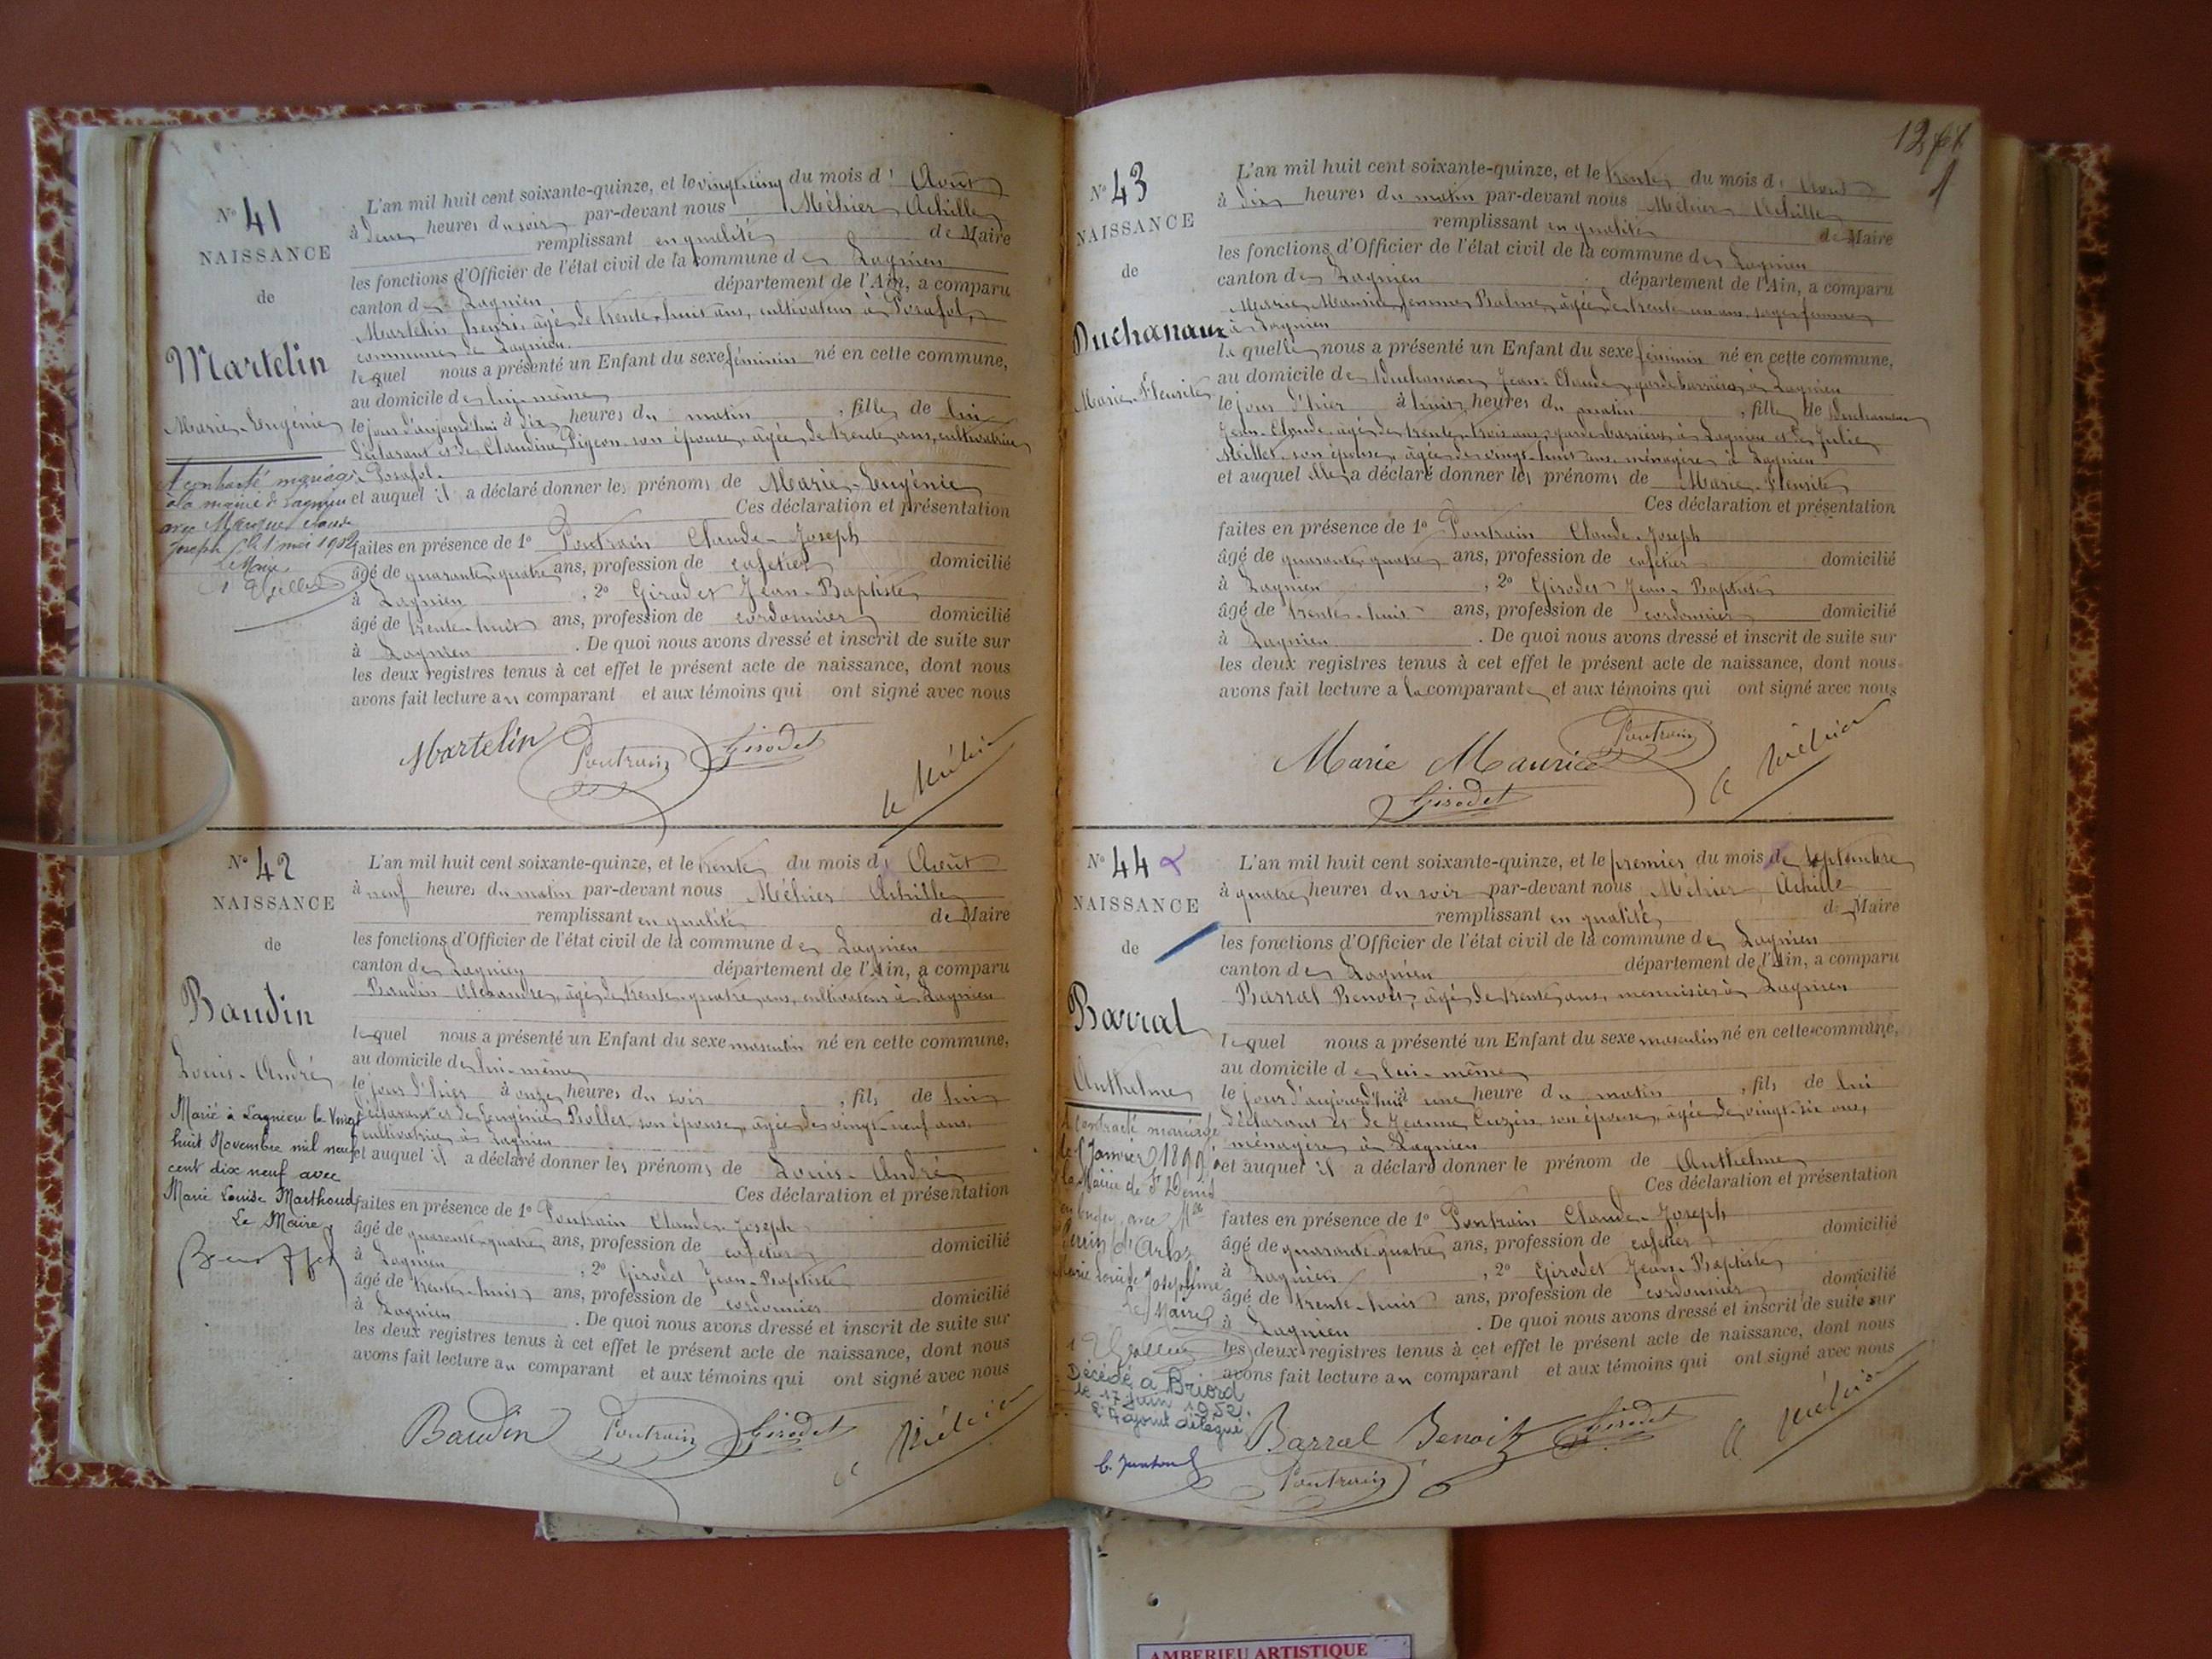 N° 41
NAISSANCE
de
Martelin
Marie-Eugénie
A contracté mariage
à la mairie de Lagnieu
avec
Joseph le 1 mai 1902
Le Maire
L'an mil huit cent soixante-quinze, et le vingt-cinq du mois d' Août
à deux heures du soir par-devant nous Méhier Achille
remplissant en qualité de Maire
les fonctions d'Officier de l'état civil de la commune de Lagnieu
canton de Lagnieu département de l'Ain, a comparu
Martelin henri, âgé de trente-huit ans, cultivateur à Posafol,
commune de Lagnieu
lequel nous a présenté un Enfant du sexe féminin né en cette commune,
au domicile de lui-même
le jour d'aujourd'hui à dix heures du matin, fille de lui
déclarant et de Claudine Pigeon son épouse, âgée de trente ans, cultivatrice
à Posafol.
et auquel il a déclaré donner les prénoms de Marie-Eugénie
Ces déclaration et présentation
faites en présence de 1° Pontrain Claude-Joseph
âgé de quarante-quatre ans, profession de cafetier domicilié
à Lagnieu, 2° Girodet Jean-Baptiste
âgé de trente-huit ans, profession de cordonnier domicilié
à Lagnieu. De quoi nous avons dressé et inscrit de suite sur
les deux registres tenus à cet effet le présent acte de naissance, dont nous
avons fait lecture au comparant et aux témoins qui ont signé avec nous
Martelin Pontrain Girodet
A Méhier
N° 42
NAISSANCE
de
Baudin
Louis-André
Marié à Lagnieu le Vingt
huit Novembre mil neuf
cent dix neuf avec
Marie Louise Marthoud
Le Maire
L'an mil huit cent soixante-quinze, et le trente du mois d' Août
à neuf heures du matin par-devant nous Méhier Achille
remplissant en qualité de Maire
les fonctions d'Officier de l'état civil de la commune de Lagnieu
canton de Lagnieu département de l'Ain, a comparu
Baudin Alexandre, âgé de trente-quatre ans, cultivateur à Lagnieu
lequel nous a présenté un Enfant du sexe masculin né en cette commune,
au domicile de lui-même
le jour d'hier à onze heures du soir, fils de lui
déclarant et de Eugénie Rollet, son épouse, âgée de vingt-neuf ans,
cultivatrice à Lagnieu
et auquel il a déclaré donner les prénoms de Louis-André
Ces déclaration et présentation
faites en présence de 1° Pontrain Claude-Joseph
âgé de quarante-quatre ans, profession de cafetier domicilié
à Lagnieu, 2° Girodet Jean-Baptiste
âgé de trente-huit ans, profession de cordonnier domicilié
à Lagnieu. De quoi nous avons dressé et inscrit de suite sur
les deux registres tenus à cet effet le présent acte de naissance, dont nous
avons fait lecture au comparant et aux témoins qui ont signé avec nous
Baudin Pontrain Girodet A Méhier
N° 43
NAISSANCE
de
Duchanaux
Marie-Fleurite
L'an mil huit cent soixante-quinze, et le trente du mois d' Août
à dix heures du matin par-devant nous Méhier Achille
remplissant en qualité de Maire
les fonctions d'Officier de l'état civil de la commune de Lagnieu
canton de Lagnieu département de l'Ain, a comparu
Marie Maurice femme Balme, âgée de trente un ans, sage femme
à Lagnieu
laquelle nous a présenté un Enfant du sexe féminin né en cette commune,
au domicile de Duchanaux Jean-Claude, garde barrière, à Lagnieu
le jour d'hier à huit heures du matin, fille de Duchanaux
Jean-Claude, âgé de trente-trois ans, garde-barrière, à Lagnieu et de Julie
Meillet, son épouse, âgée de vingt-huit ans, ménagère à Lagnieu
et auquel elle a déclaré donner les prénoms de Marie-Fleurite
Ces déclaration et présentation
faites en présence de 1° Pontrain Claude-Joseph
âgé de quarante-quatre ans, profession de cafetier domicilié
à Lagnieu, 2° Girodet Jean-Baptiste
âgé de trente-huit ans, profession de cordonnier domicilié
à Lagnieu. De quoi nous avons dressé et inscrit de suite sur
les deux registres tenus à cet effet le présent acte de naissance, dont nous
avons fait lecture a la comparante et aux témoins qui ont signé avec nous
Marie Maurice Pontrain A Méhier
Girodet
N° 44
NAISSANCE
de
Barral
Anthelme
A contracté mariage
le Janvier 1899 à
la Mairie de St Denis
en bugey avec Mlle
Perrin d'Arloz
Marie Louise Joséphine
Le Maire
Décédé à Briord
le 17 Juin 1952.
L'Adjoint délégué
L'an mil huit cent soixante-quinze, et le premier du mois de Septembre
à quatre heures du soir par-devant nous Méhier Achille
remplissant en qualité de Maire
les fonctions d'Officier de l'état civil de la commune de Lagnieu
canton de Lagnieu département de l'Ain, a comparu
Barral Benoît, âgé de trente ans, menuisier à Lagnieu
lequel nous a présenté un Enfant du sexe masculin né en cette commune,
au domicile de lui-même
le jour d'aujourd'hui à une heure du matin, fils de lui
déclarant et de Jeanne Cuzin, son épouse, âgée de vingt-six ans,
ménagère à Lagnieu
et auquel il a déclaré donner le prénom de Anthelme
Ces déclaration et présentation
faites en présence de 1° Pontrain Claude-Joseph
âgé de quarante-quatre ans, profession de cafetier domicilié
à Lagnieu, 2° Girodet Jean-Baptiste
âgé de trente-huit ans, profession de cordonnier domicilié
à Lagnieu. De quoi nous avons dressé et inscrit de suite sur
les deux registres tenus à cet effet le présent acte de naissance, dont nous
avons fait lecture au comparant et aux témoins qui ont signé avec nous
Barral Benoit Girodet A Méhier
Pontrain
AMBERIEU ARTISTIQUE